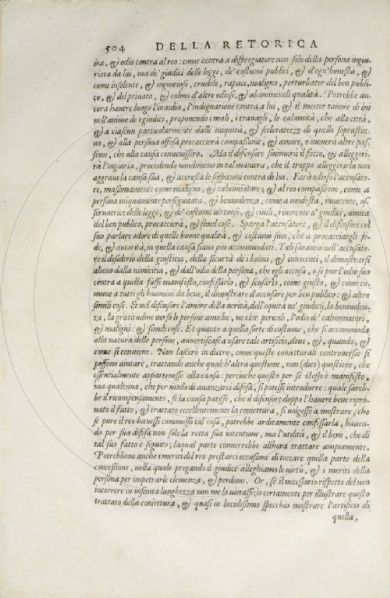 504 DELLA RETORICA
ira, & odio contra al reo: come contra a dispregiatore non solo della persona ingiu
riata da lui, ma de' giudici delle leggi, de' costumi publici, & d'ogn'honestà, &
come insolente, & ingiurioso, crudele, rapace, maligno, perturbator del ben publi-
co, & del privato, & colmo d'altre odiose, & abominevoli qualità. Potrebbe an-
cora havere luogo l'invidia, l'indegnatione contra a lui, & il metter timore di lui
nell'animo de i giudici, proponendo i mali, i travagli, le calamità, che alla città,
& a ciascun particolarmente dalle iniquità, & sceleratezze di quello soprastan-
no, & alla persona offesa procaccerà compassione, & amore, o moverà altre pas-
sioni, che alla causa convenissero. Ma il difensore sminuirà il fatto, & alleggeri-
rà l'ingiuria, procedendo nondimeno in tal maniera, che il troppo alleggerirla non
aggravi la causa sua, & accresca le sospitioni contra di lui. Farà odioso l'accusato-
re, massimamente come maligno, & calunniatore; & al reo compassione, come a
persona iniquamente perseguitata, & benivolenza, come a modesta, innocente, os-
servatrice delle leggi, & de' costumi virtuosi, & civili, riverente a' giudici, amica
del ben publico, procaccierà, & simil cose. Sparga l'accusatore, & il difensore col
suo parlare odore di quelle buone qualità, & costumi suoi, che a procacciargli fe-
de, & autorità, in quella causa sieno piu accommodati. Tali saranno nell'accusato-
re il desiderio della giustitia, della sicurtà de i buoni, & innocenti, il dimostrarsi
alieno dalla nimicitia, & dall'odio della persona, che egli accusa, o se pur l'odio suo
contra a quella fusse manifesto, confessarlo, & scusarlo, come giusto, & come co-
mune a tutti gli huomini da bene, il dimostrare d'accusare per ben publico; & altre
simili cose. Et nel difensore l'amore della verità, dell'equità ne' giudicii, la benivolen-
za, la gratitudine verso le persone amiche, ne i lor pericoli, l'odio de' calunniatori,
& maligni: & simili cose. Et quanto a quella sorte di costume, che si accommoda
alla natura delle persone, avvertiscasi a usare tal artificio, dove, & quando, &
come si conviene. Non lascerò in dietro, come queste conietturali controversie si
possono aiutare, trattando anche qualch'altra questione, non (dico) questione, che
essentialmente appartenesse alla causa: perioche questo per se stesso è manifesto,
ma qualcuna, che per modo di avanzarci difesa, si potesse introdurre: quale sareb-
be il ricompensamento, se la causa patisse, che il difensore doppo l'havere bene ripro-
vato il fatto, & trattato eccellentemente la coniettura, si volgesse a mostrare, che
se pure il reo havesse commisso tal cosa, potrebbe arditamente confessarla, haven-
do per sua difesa non solo la retta sua intentione, ma l'utilità, & il bene, che di
tal suo fatto è seguito; laqual parte converrebbe allhora trattare ampiamente.
Potrebbono anche i meriti del reo prestarci occasione di toccare quella parte della
concessione, nella quale pregando il giudice alleghiamo le virtù, & i meriti della
persona per impetrarle clemenza, & perdono. Or, se il necessario rispetto del non
incorrere in infinita lunghezza non me lo vietasse, io certamente per illustrare questo
trattato della coniettura, & quasi in lucidissimo specchio mostrare l'artificio di
quella,